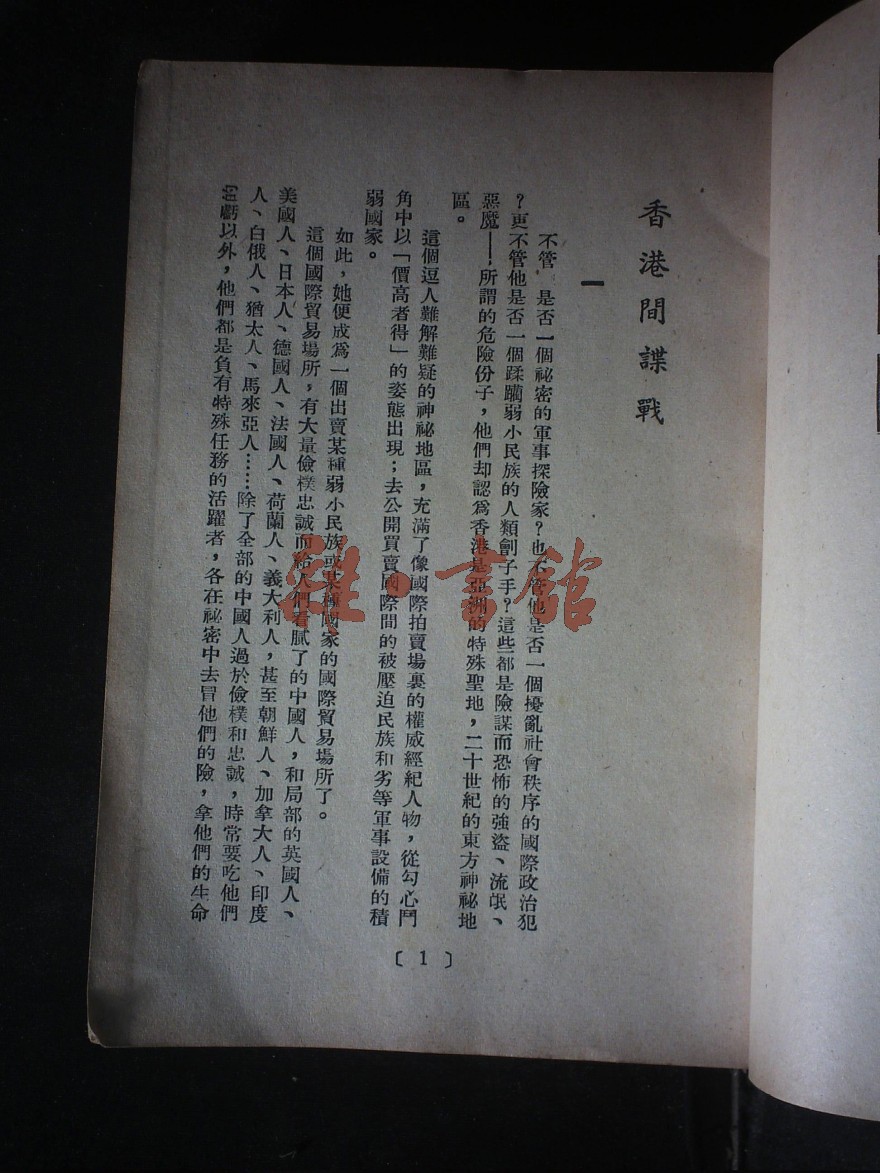 香港間諜戰
一
不管 是否一個祕密的軍事探險家？也不管他是否一個擾亂社會秩序的國際政治犯
？更不管他是否一個蹂躪弱小民族的人類劊子手？這些都是險謀而恐怖的強盜、流氓、
惡魔——所謂的危險份子，他們却認爲香港是亞洲的特殊聖地，二十世紀的東方神祕地
區。
這個逗人難解難疑的神祕地區，充滿了像國際拍賣場裏的權威經紀人物，從勾心鬥
角中以「價高者得」的姿態出現；去公開買賣國際間的被壓迫民族和劣等軍事設備的積
弱國家。
如此，她便成爲一個出賣某種弱小民族或某種國家的國際貿易場所了。
這個國際貿易場所，有大量儉樸忠誠而給人們看膩了的中國人，和局部的英國人、
美國人、日本人、德國人、法國人、荷蘭人、義大利人，甚至朝鮮人、加拿大人、印度
人、白俄人、猶太人、馬來亞人……除了全部的中國人過於儉樸和忠誠，時常要吃他們
虧以外，他們都是負有特殊任務的活躍者，各在祕密中去冒他們的險，拿他們的生命
〔1〕
雜書館